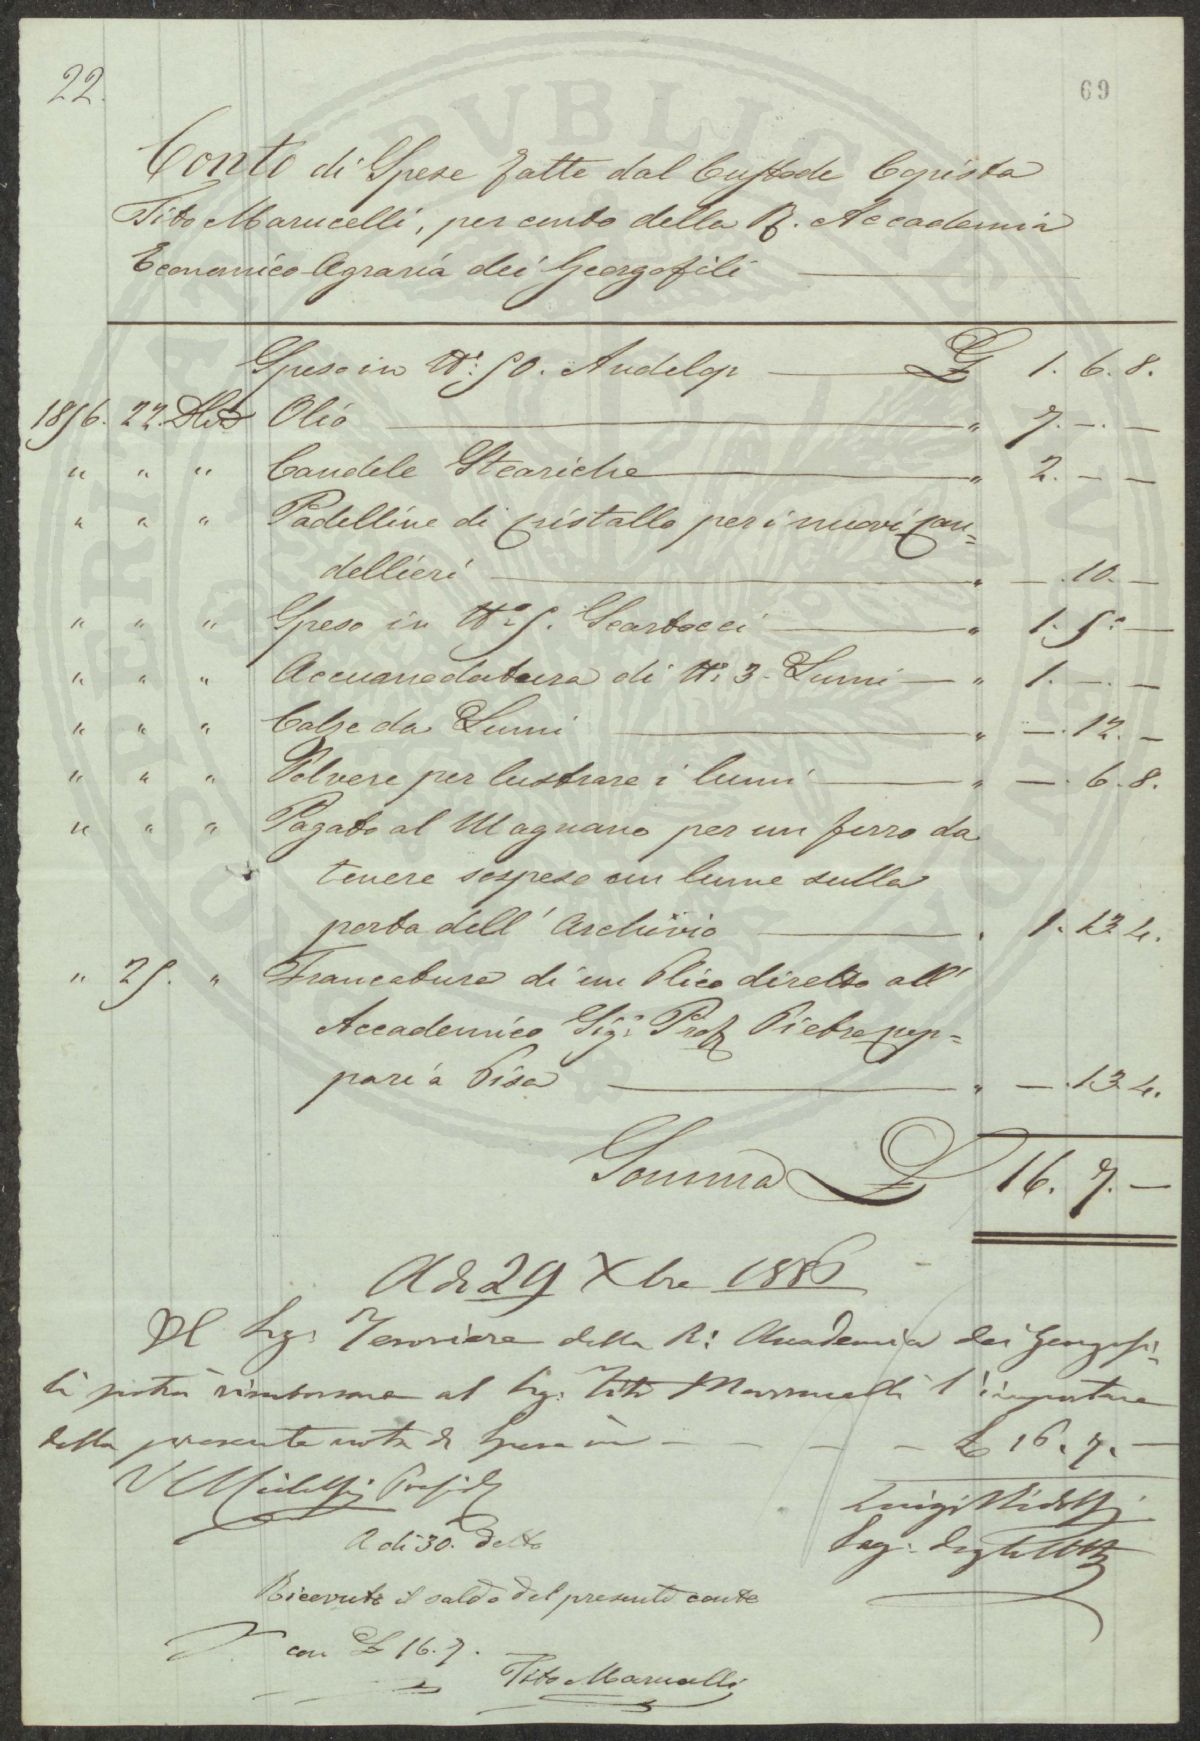 22.
69
Conto di Spese fatte dal Custode Copista
Tito Marucelli, per conto della R. Accademia
Economico Agraria dei Georgofili
Speso in N.° 50. £ 1. 6. 8.
1856. 22. Olio " 7. - . -
" " " Candele Steariche " 2. - -
" " " Padelline di cristallo per i nuovi can=
dellieri " - . 10. -
" " " Speso in N.° 5. Scartocci " 1. 5. -
" " " Accuanodatura di N.° 3. Lumi " 1. - . -
" " " Calze da Lumi " - . 12. -
" " " Polvere per lustrare i lumi " - . 6. 8.
" " " Pagato al Magnano per un ferro da
tenere sospeso un lume sulla
porta dell' Archivio " 1. 13. 4.
" 25. " Francatura di un Plico diretto all'
Accademico Sig. Prof. Pietro
a Pisa " - . 13. 4.
Somma £ 16. 7. -
A di 29 Xbre 1856
Il Sig. Tesoriere della R. Accademia dei Georgofi=
li potrà rimborsare al Sig. Tito Marucelli l'importare
della presente nota di spese in - - - - £ 16. 7. -
V Presid
Luigi
A di 30. Detto
Seg. degli Atti
Ricevuto il saldo del presente conto
con £ 16. 7.
Tito Marucelli